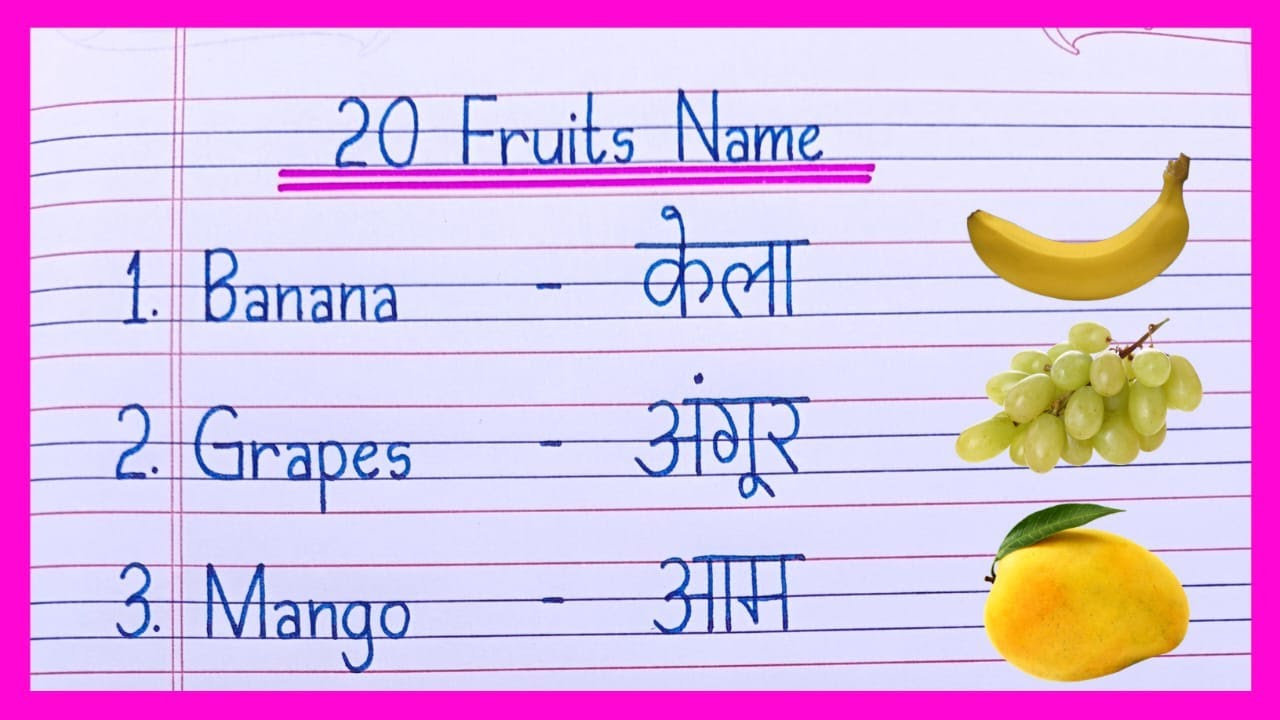 20 Fruits Name
1. Banana - केला
2. Grapes - अंगूर
3. Mango - आम